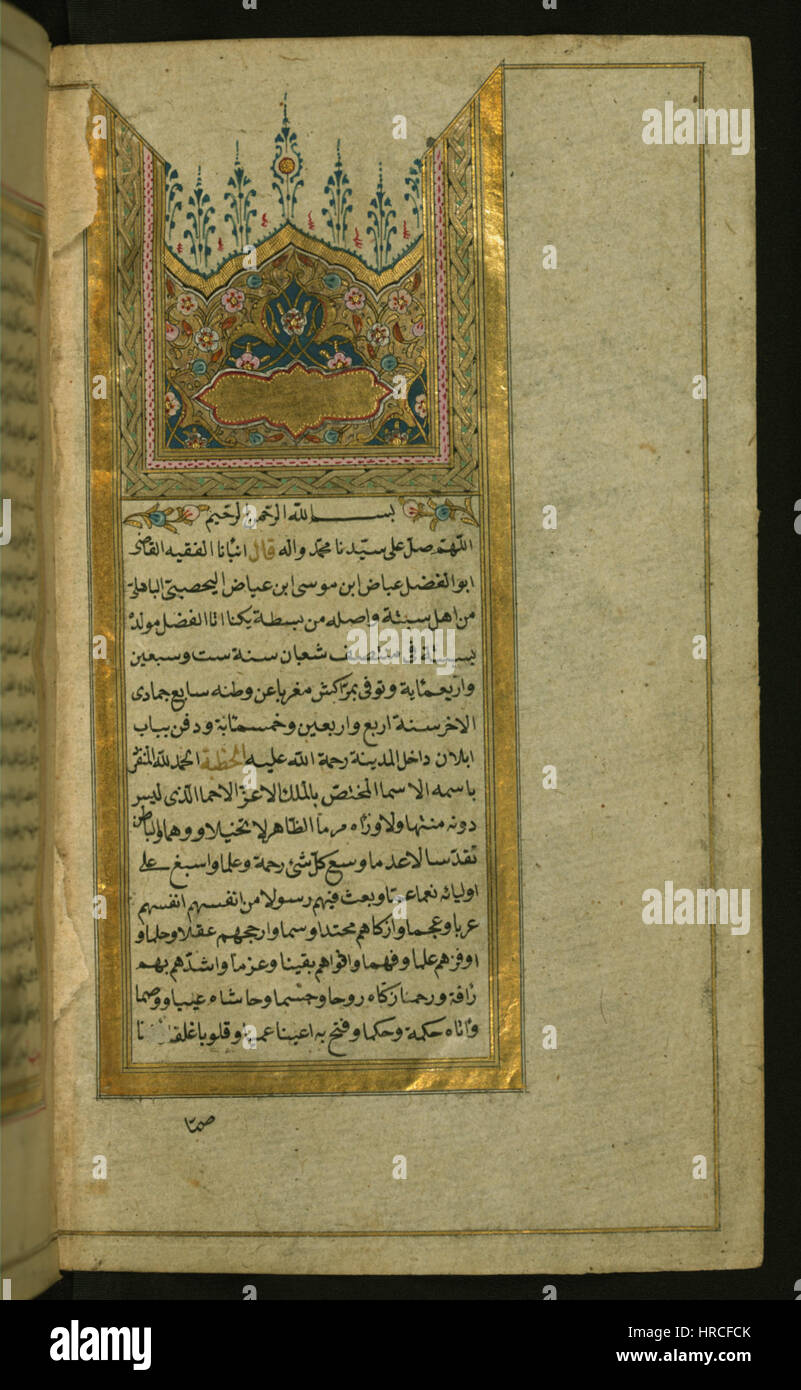 بسم الله الرحمن الرحيم
اللهم صل على سيدنا محمد واله قال انبانا الفقيه القاضى
ابو الفضل عياض ابن موسى ابن عياض اليحصبى الباهلى
من اهل سبتة واصله من بسطة يكنا ابا الفضل مولده
بسبتة فى منتصف شعبان سنة ست وسبعين
واربعماية وتوفى بمراكش مغربا عن وطنه سابع جمادى
الاخر سنة اربع واربعين وخمسماية ودفن بباب
ايلان داخل المدينة رحمة الله عليه الخطبة الحمد لله المنفرد
باسمه الاسما المختص بالملك الاعز الاحما الذى ليس
دونه منتها ولا وراه مرما الظاهر لا تخيلا ووهما والباطن
تقدسا لا عدما وسع كل شئ رحمة وعلما واسبغ على
اوليائه نعما عما وبعث فيهم رسولا من انفسهم انفسهم
عربا وعجما وازكاهم محتدا وسما وارجحهم عقلا وحلما و
اوفرهم علما وفهما واقواهم يقينا وعزما واشدهم بهم
رافة ورحما زكاه روحا وجسما وحاشاه عيبا ووصما
واتاه حكمة وحكما وفتح به اعينا عميا وقلوبا غلفا
صما
alamy
a
Image ID: HRCFCK
www.alamy.com